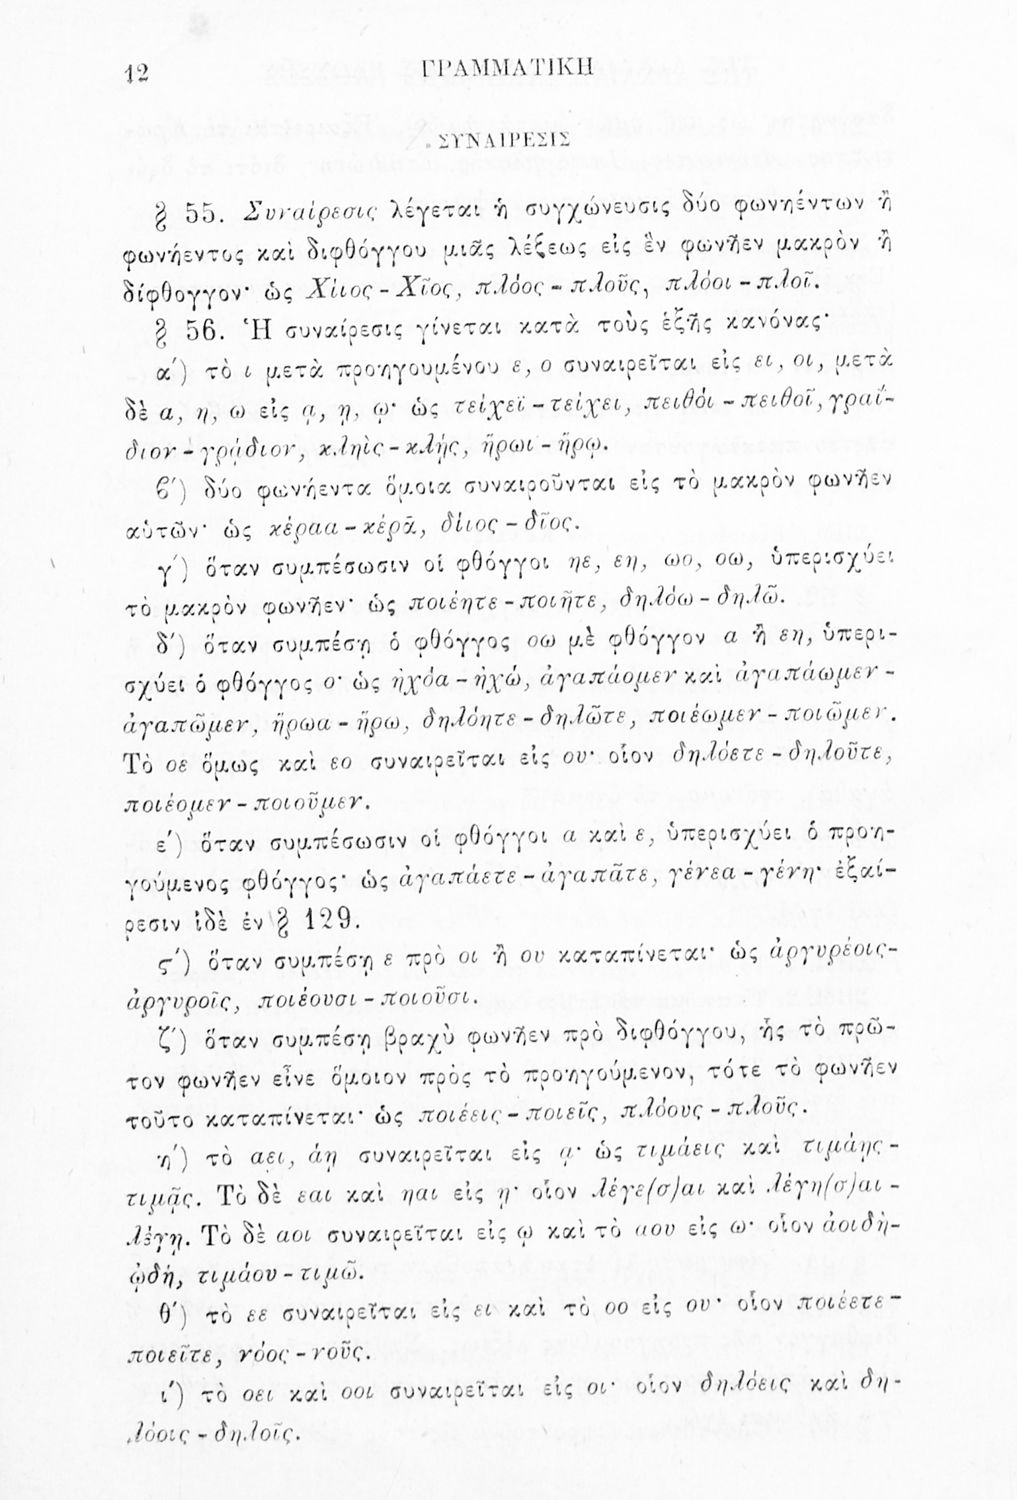 12
ΓΡΑΜΜΑΤΙΚΗ
ΣΥΝΑΙΡΕΣΙΣ
§ 55. Συναίρεσις λέγεται ἡ συγχώνευσις δύο φωνηέντων ἢ
φωνήεντος καὶ διφθόγγου μιᾶς λέξεως εἰς ἓν φωνῆεν μακρὸν ἢ
δίφθογγον· ὡς Χίιος - Χῖος, πλόος - πλοῦς, πλόοι - πλοῖ.
§ 56. Ἡ συναίρεσις γίνεται κατὰ τοὺς ἑξῆς κανόνας·
α´) τὸ ι μετὰ προηγουμένου ε, ο συναιρεῖται εἰς ει, οι, μετὰ
δὲ α, η, ω εἰς ᾳ, ῃ, ῳ· ὡς τείχεϊ - τείχει, πειθόι - πειθοῖ, γραΐ-
διον - γρᾴδιον, κληὶς - κλῄς, ἥρωι - ἥρῳ.
β´) δύο φωνήεντα ὅμοια συναιροῦνται εἰς τὸ μακρὸν φωνῆεν
αὑτῶν· ὡς κέραα - κέρᾱ, δίιος - δῖος.
γ´) ὅταν συμπέσωσιν οἱ φθόγγοι ηε, εη, ωο, οω, ὑπερισχύει
τὸ μακρὸν φωνῆεν· ὡς ποιέητε - ποιῆτε, δηλόω - δηλῶ.
δ´) ὅταν συμπέσῃ ὁ φθόγγος οω μὲ φθόγγον α ἢ εη, ὑπερι-
σχύει ὁ φθόγγος ο· ὡς ἠχόα - ἠχώ, ἀγαπάομεν καὶ ἀγαπάωμεν -
ἀγαπῶμεν, ἥρωα - ἥρω, δηλόητε - δηλῶτε, ποιέωμεν - ποιῶμεν.
Τὸ οε ὅμως καὶ εο συναιρεῖται εἰς ου· οἷον δηλόετε - δηλοῦτε,
ποιέομεν - ποιοῦμεν.
ε´) ὅταν συμπέσωσιν οἱ φθόγγοι α καὶ ε, ὑπερισχύει ὁ προη-
γούμενος φθόγγος· ὡς ἀγαπάετε - ἀγαπᾶτε, γένεα - γένη· ἐξαί-
ρεσιν ἰδὲ ἐν § 129.
ς´) ὅταν συμπέσῃ ε πρὸ οι ἢ ου καταπίνεται· ὡς ἀργυρέοις-
ἀργυροῖς, ποιέουσι - ποιοῦσι.
ζ´) ὅταν συμπέσῃ βραχὺ φωνῆεν πρὸ διφθόγγου, ἧς τὸ πρῶ-
τον φωνῆεν εἶνε ὅμοιον πρὸς τὸ προηγούμενον, τότε τὸ φωνῆεν
τοῦτο καταπίνεται· ὡς ποιέεις - ποιεῖς, πλόους - πλοῦς.
η´) τὸ αει, άῃ συναιρεῖται εἰς ᾳ· ὡς τιμάεις καὶ τιμάῃς -
τιμᾷς. Τὸ δὲ εαι καὶ ηαι εἰς ῃ· οἷον λέγε(σ)αι καὶ λέγη(σ)αι -
λέγῃ. Τὸ δὲ αοι συναιρεῖται εἰς ῳ καὶ τὸ αου εἰς ω· οἷον ἀοιδὴ-
ᾠδή, τιμάου - τιμῶ.
θ´) τὸ εε συναιρεῖται εἰς ει καὶ τὸ οο εἰς ου· οἷον ποιέετε -
ποιεῖτε, νόος - νοῦς.
ι´) τὸ οει καὶ οοι συναιρεῖται εἰς οι· οἷον δηλόεις καὶ δη-
λόοις - δηλοῖς.